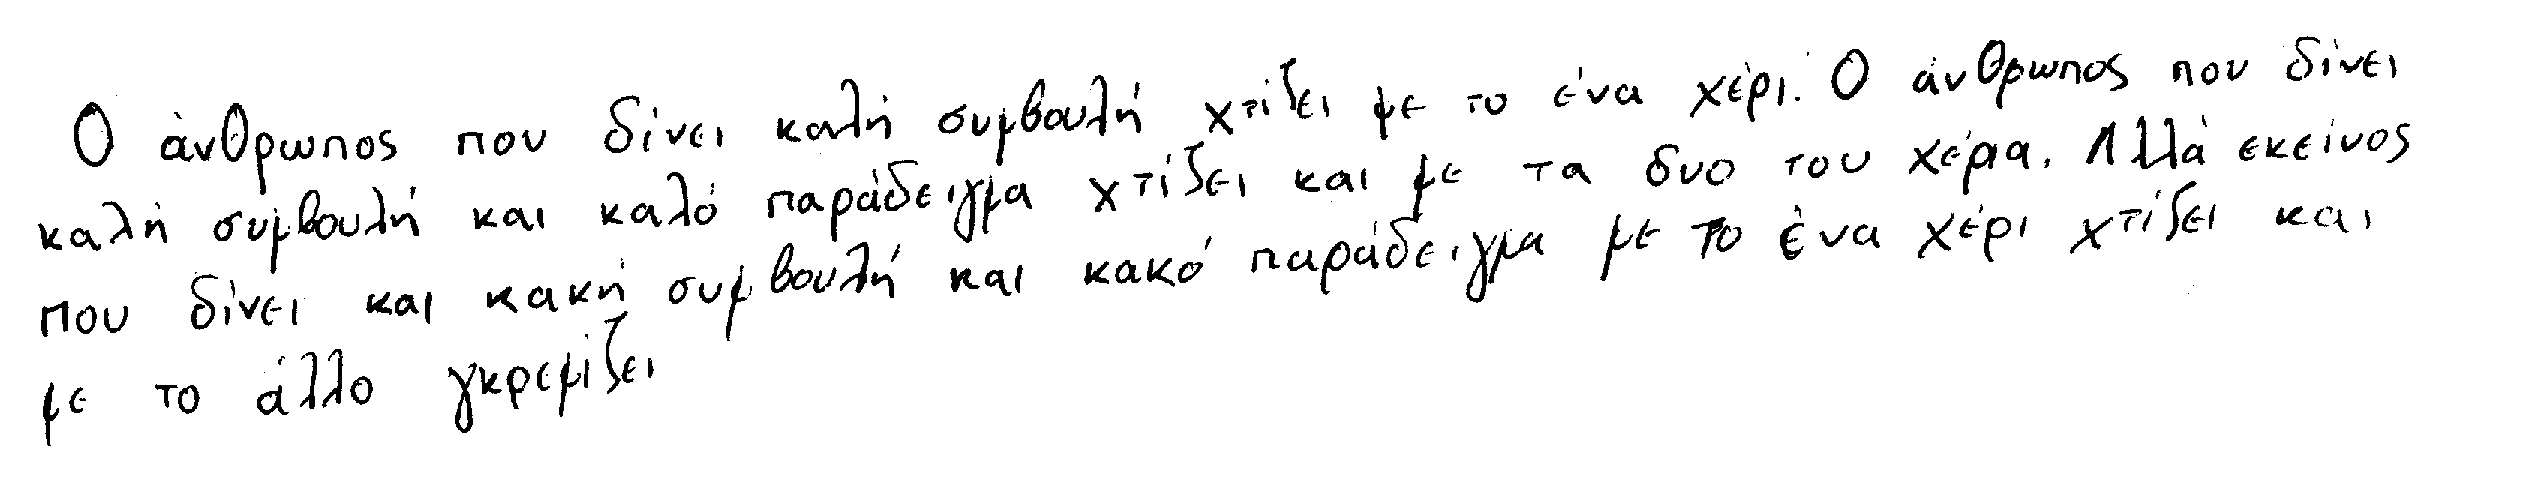 Ο άνθρωπος που δίνει καλή συμβουλή χτίζει με το ένα χέρι. Ο άνθρωπος που δίνει
καλή συμβουλή και καλό παράδειγμα χτίζει και με τα δυο του χέρια. Αλλά εκείνος
που δίνει και κακή συμβουλή και κακό παράδειγμα με το ένα χέρι χτίζει και
με το άλλο γκρεμίζει